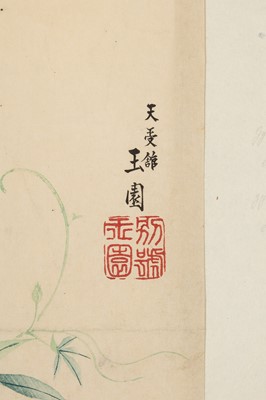 天受館
玉園
別號
玉園